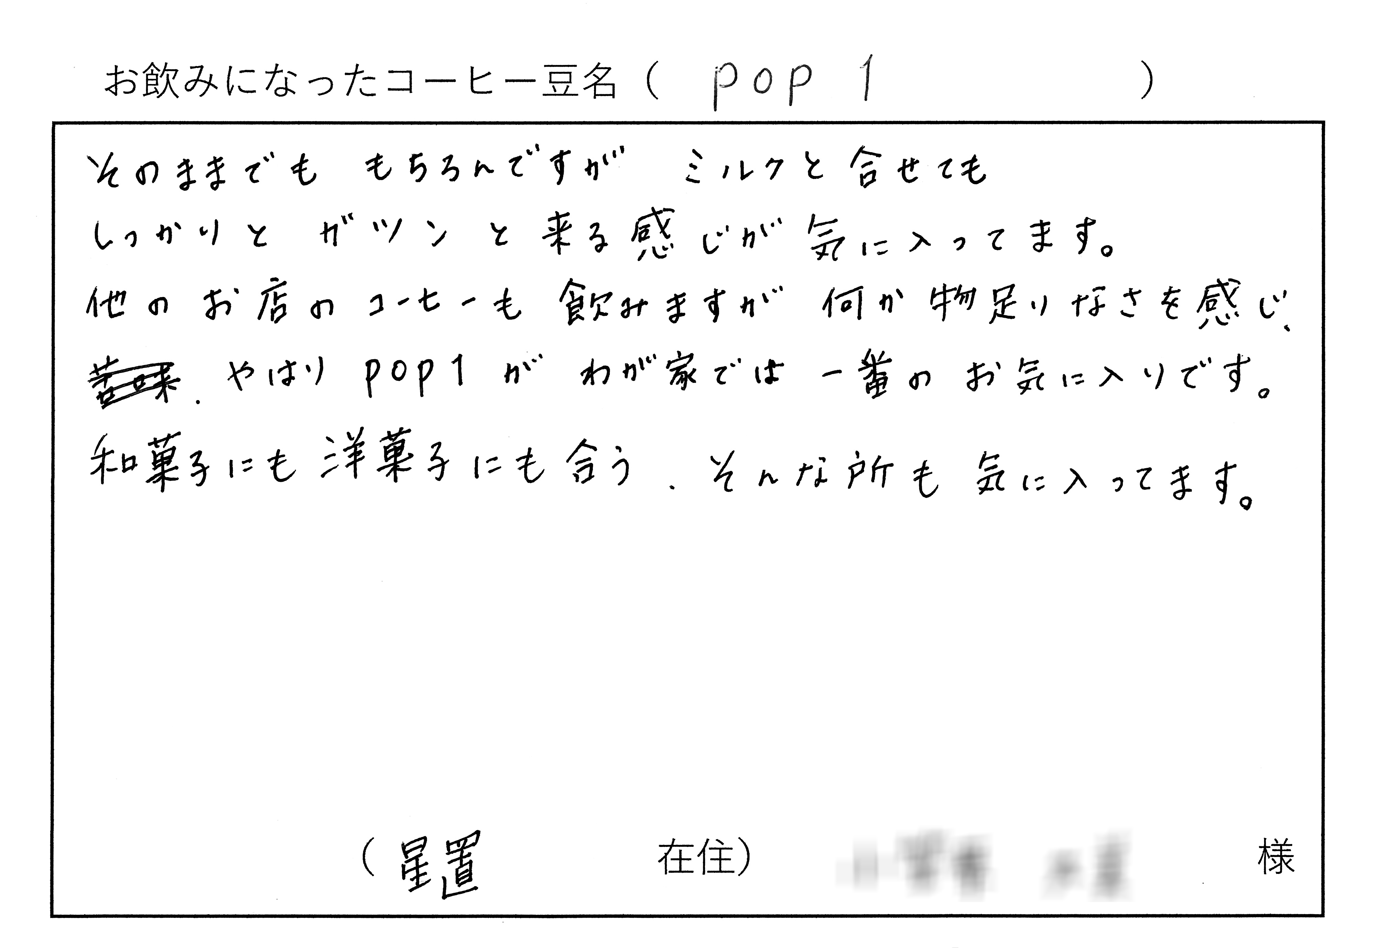 お飲みになったコーヒー豆名（ pop 1 ）
そのままでも もちろんですが ミルクと合せても
しっかりと ガツンと来る感じが気に入ってます。
他のお店のコーヒーも飲みますが 何か物足りなさを感じ、
苦味、やはりpop1が わが家では一番のお気に入りです。
和菓子にも洋菓子にも合う、そんな所も気に入ってます。
（星置 在住） 様